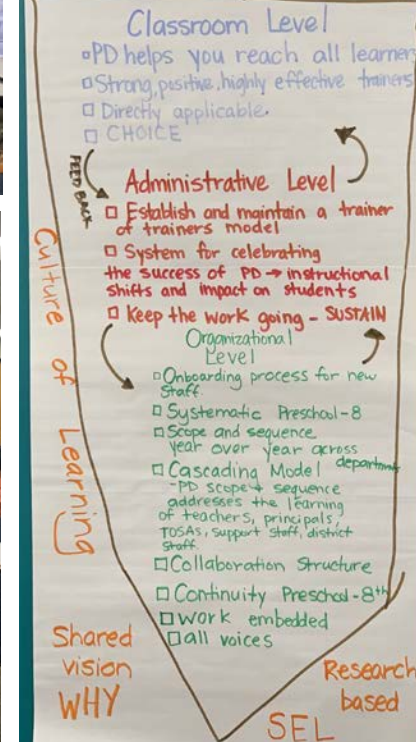 Classroom Level
▫PD helps you reach all learners
▫Strong, positive, highly effective trainers
▫Directly applicable.
▫CHOICE
FEEDBACK
Administrative Level
▫Establish and maintain a trainer
of trainers model
▫System for celebrating
the success of PD → instructional
shifts and impact on students
▫Keep the work going - SUSTAIN
Organizational
Level
▫Onboarding process for new
staff.
▫Systematic Preschool-8
▫Scope and sequence
year over year across
departments
▫Cascading Model
-PD scope & sequence
addresses the learning
of teachers, principals,
TOSAs, support staff, district
staff.
▫Collaboration Structure
▫Continuity Preschool-8th
▫work embedded
▫all voices
Culture of Learning
Shared
vision
WHY
SEL
Research
based